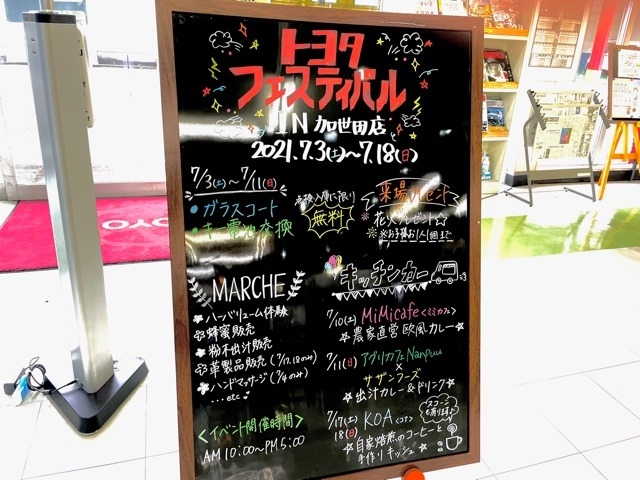 トヨタ
フェスティバル
IN 加世田店
2021.7.3(土)〜7.18(日)
7/3(土)〜7/11(日)
・ガラスコート
・キー電池交換
無料!
来場プレゼント
花火プレゼント☆
※お子様お1人1個まで
MARCHE
ハーバリューム体験
蜂蜜販売
粉末出汁販売
革製品販売(7/17.18のみ)
ハンドマッサージ(7/4のみ)
...etc
<イベント開催時間>
AM10:00〜PM5:00
キッチンカー
7/10(土) MiMicafe<ミミカフェ>
☆農家直営 欧風カレー☆
7/11(日) アグリカフェNanpuu
×
サザンフーズ
☆出汁カレー&ドリンク☆
7/17(土)
18(日)
KOA<コア>
☆自家焙煎のコーヒーと
手作りキッシュ☆
TOYO